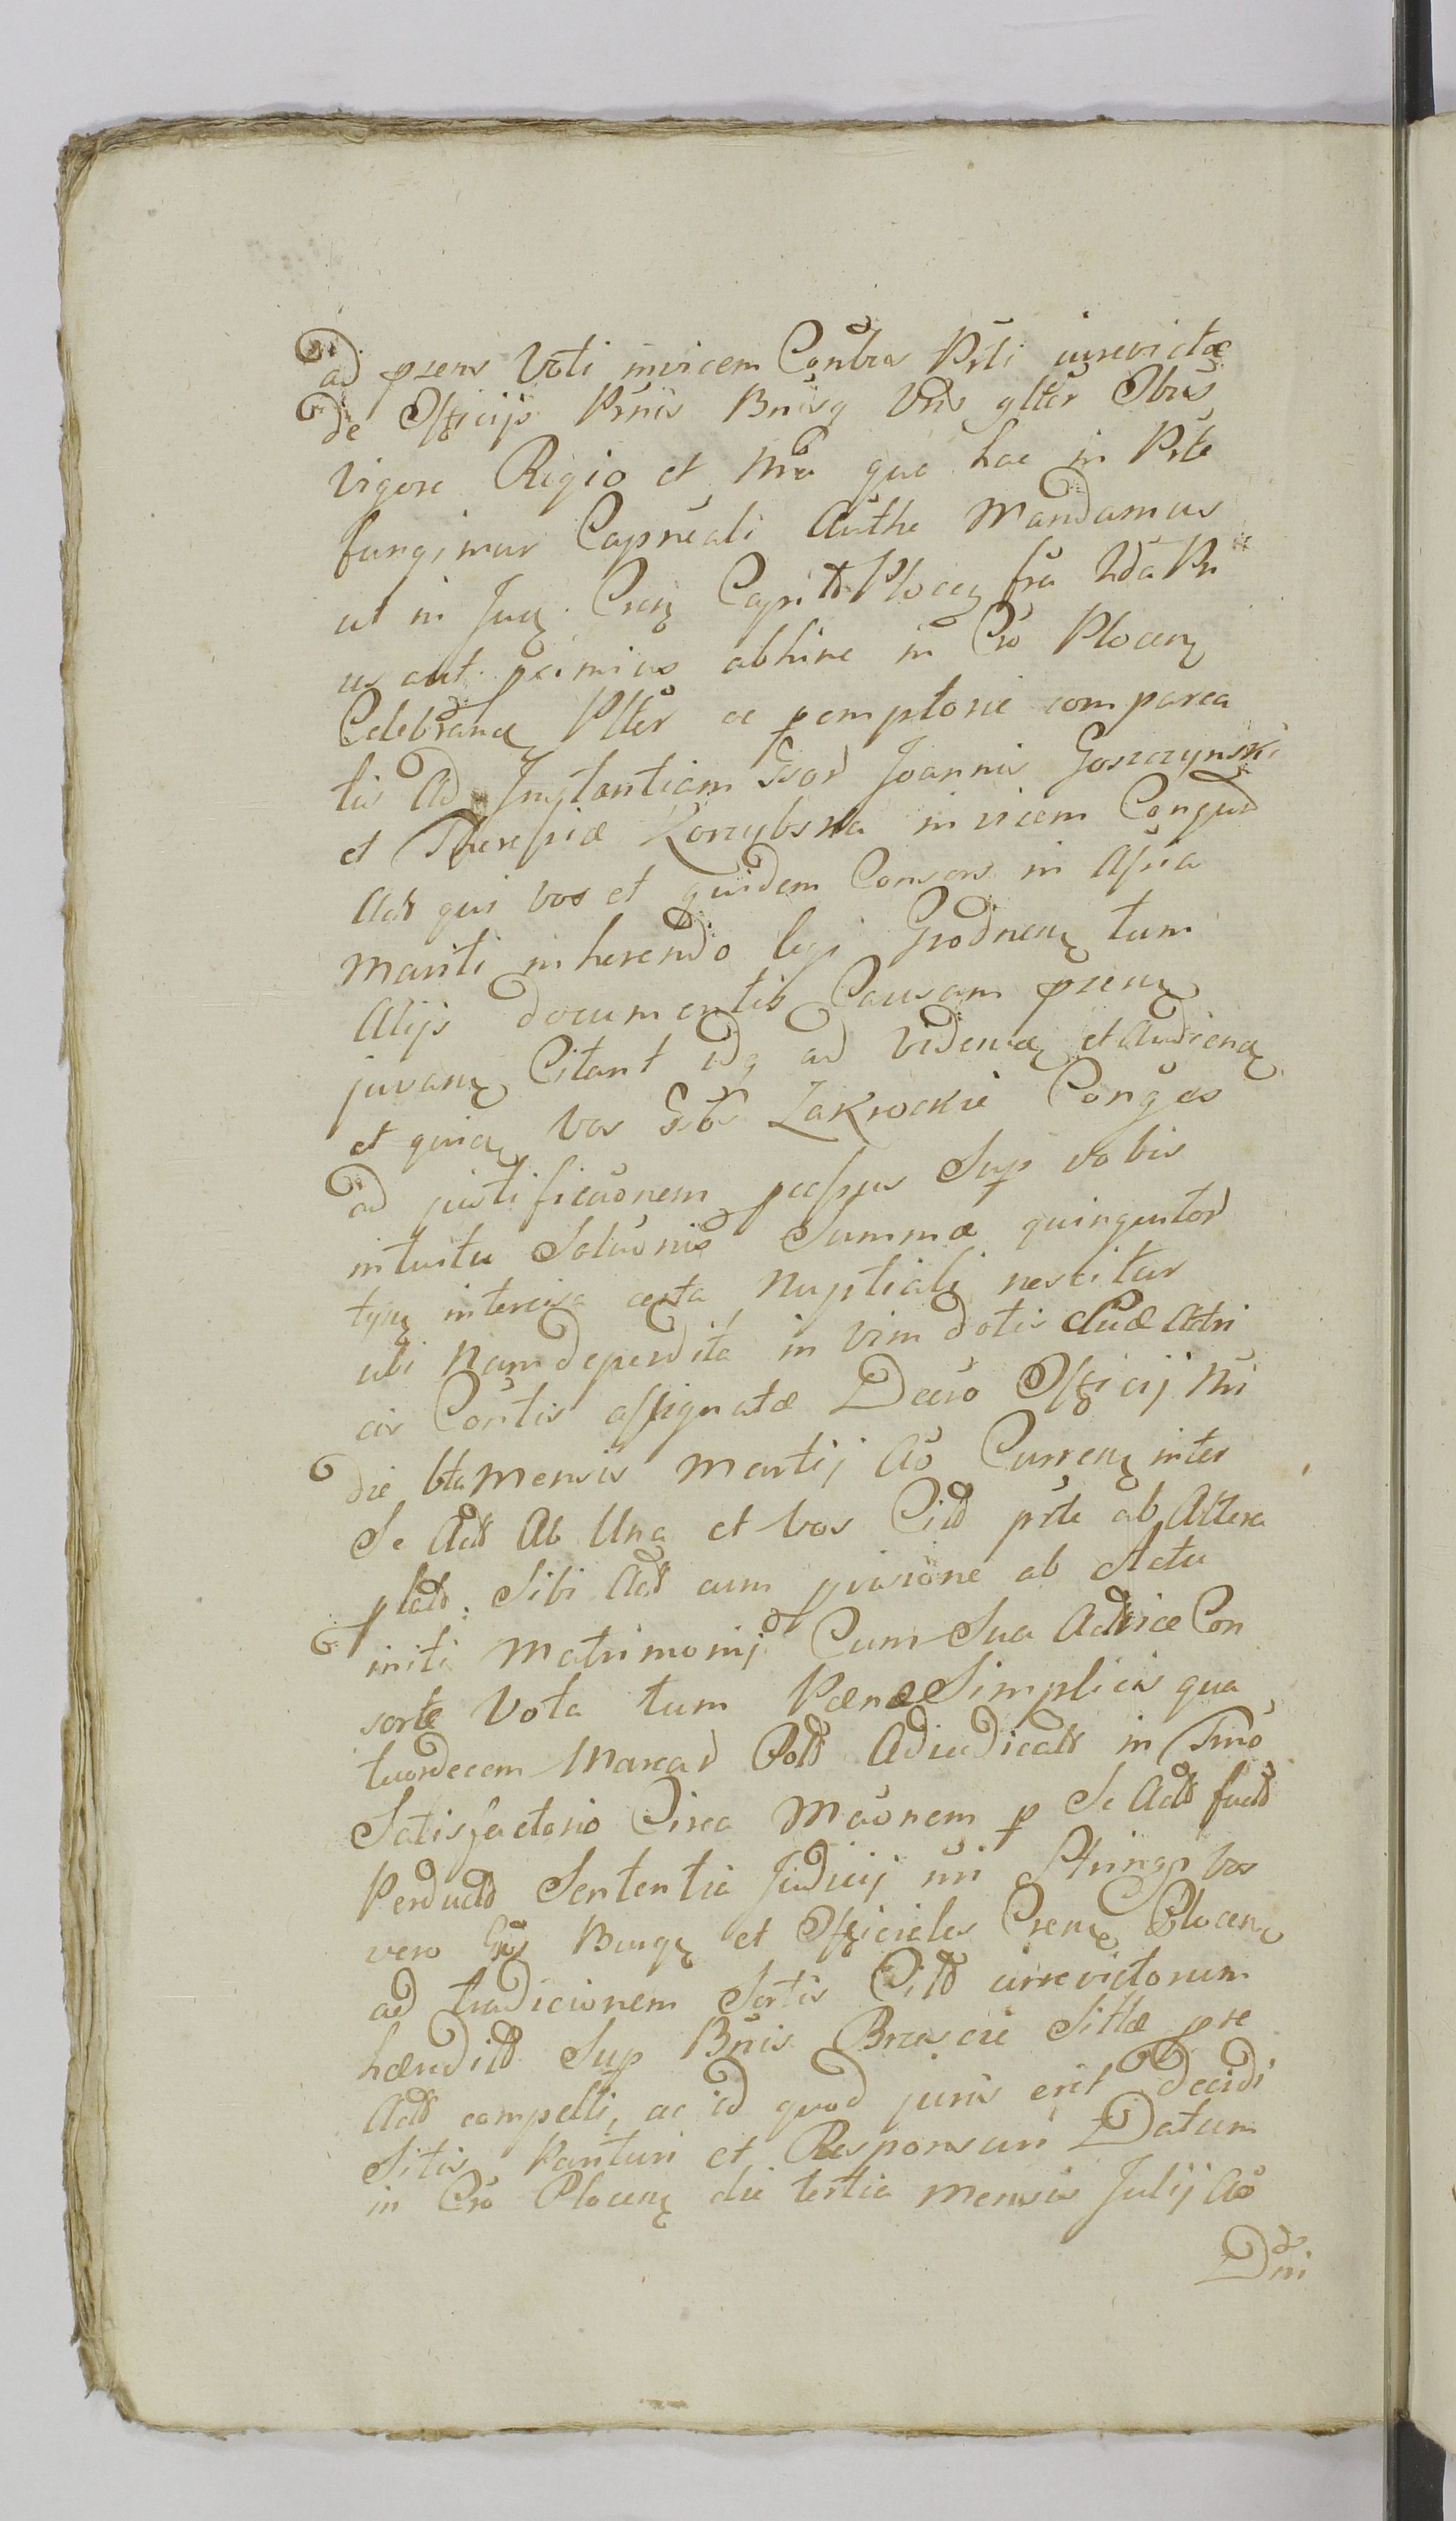 ad psens Voti invicem Contra Prti iurevictæ
de Officijs Prnis Bnisq Vris glter Obus
Vigore Regio et Nra qua hac in Prte
fungimur Capneali Authe Mandamus
ut in Juđ Cren Capit Plocen fra 2da Pn
us aut primius abhinc in Cro Plocen
Celebrand Plter ac pemptorie comparea
tis Ad Instantiam Gsor Joannis Goszczynski
et Theresiæ Korzybska invicem Congum
Act qui vos et quidem Consors in Assia
Mariti inherendo legi Grodnen tum
Alijs documentis Causam psens
juvan Citant idq ad Videnđ et Audienđ
et quia vos Gsos Zakrockie Conges
ad justificaonem passus Sup vobis
intuitu Solutionis Summæ quingentor
tyn intercisa certa Nuptiali nescitur
ubi Nam deperdita in Vim dotis Suæ Actri
cis Contis assignatæ Decro Officij Nri
die 6ta Mensis Martij Ao Curren inter
Se Acts Ab Una et vos Citt prte ab Altera
plato. Sibi Acts cum pvisione ab Actu
initi Matrimonij Cum Sua Actrice Con
sorte Vota tum Pænæ Simplicis qua
tuordecem Marcar Polt Adiudicatt in Trno
Satisfactorio Circa Maonem p Se Actt factt
Perductt Sententia Judicij nri Stringi vos
vero Gsos Burg et Officiales Crens Plocens
ad tradicionem Sortis Citt iurevictorum
hæreditt Sup Bnis Brzescie Sittæ pre
Actt compelli, ac id quod juris erit decidi
Sitis Parituri et Responsuri Datum
in Cro Plocen die tertia Mensis Julij Ao
Dni